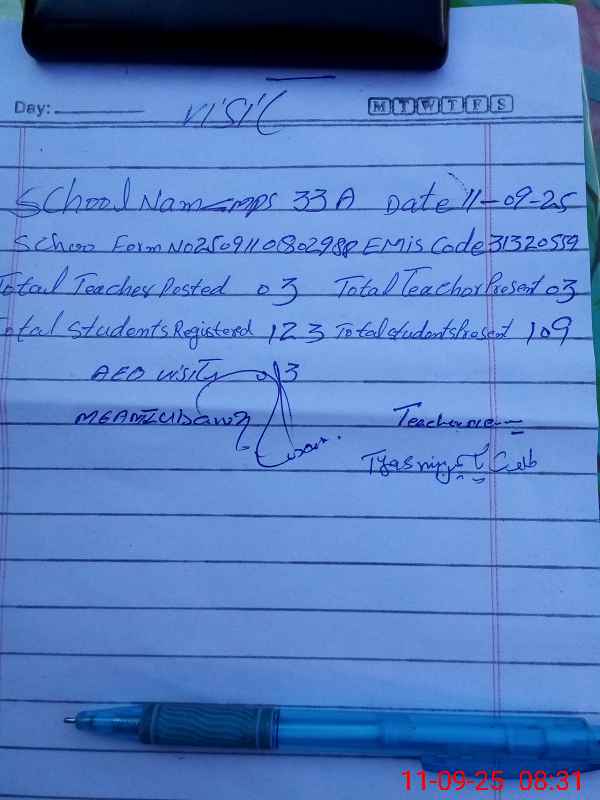 Day:
visit
M T W T F S
School Nam mps 33 A Date 11-09-25
Schoo Form No 2509110802988 EMis Code 31320559
Total Teacher Posted 03 Total Teachor Present 03
Total Students Registered 123 Total students Present 109
AEO visit 03
Teacher
11-09-25 08:31